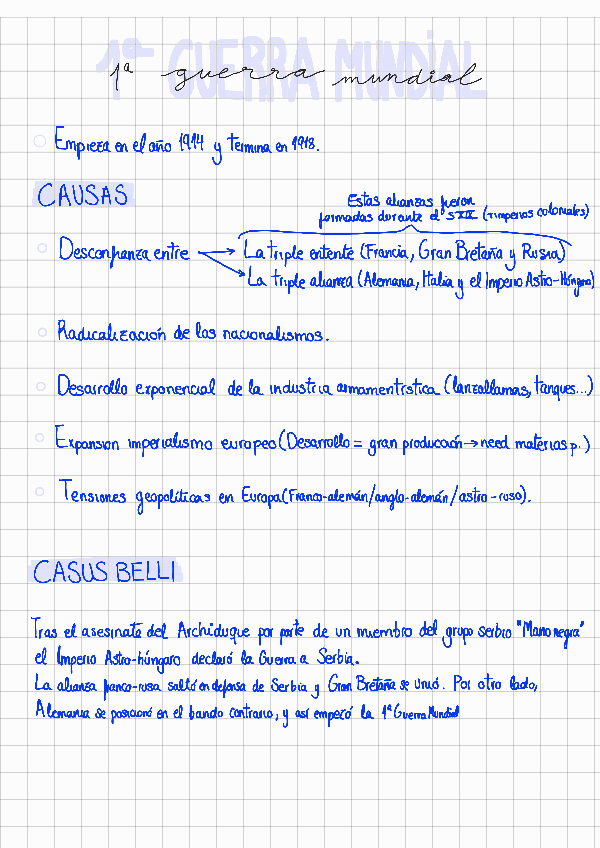 1ª GUERRA MUNDIAL
1ª guerra mundial
Empieza en el año 1914 y termina en 1918.
CAUSAS
Estas alianzas fueron
formadas durante el SXIX (+imperios coloniales)
Desconfianza entre → La triple entente (Francia, Gran Bretaña y Rusia)
La triple alianza (Alemania, Italia y el Imperio Astro-Húngaro)
Radicalización de los nacionalismos.
Desarrollo exponencial de la industria armamentística (lanzallamas, tanques...)
Expansion imperialismo europeo (Desarrollo = gran producción → need materias p.)
Tensiones geopolíticas en Europa (Franco-alemán/anglo-alemán/astro-ruso).
CASUS BELLI
Tras el asesinato del Archiduque por parte de un miembro del grupo serbio "Mano negra"
el Imperio Astro-húngaro declaró la Guerra a Serbia.
La alianza franco-rusa saltó en defensa de Serbia y Gran Bretaña se unió. Por otro lado,
Alemania se posicionó en el bando contrario, y así empezó la 1ª Guerra Mundial